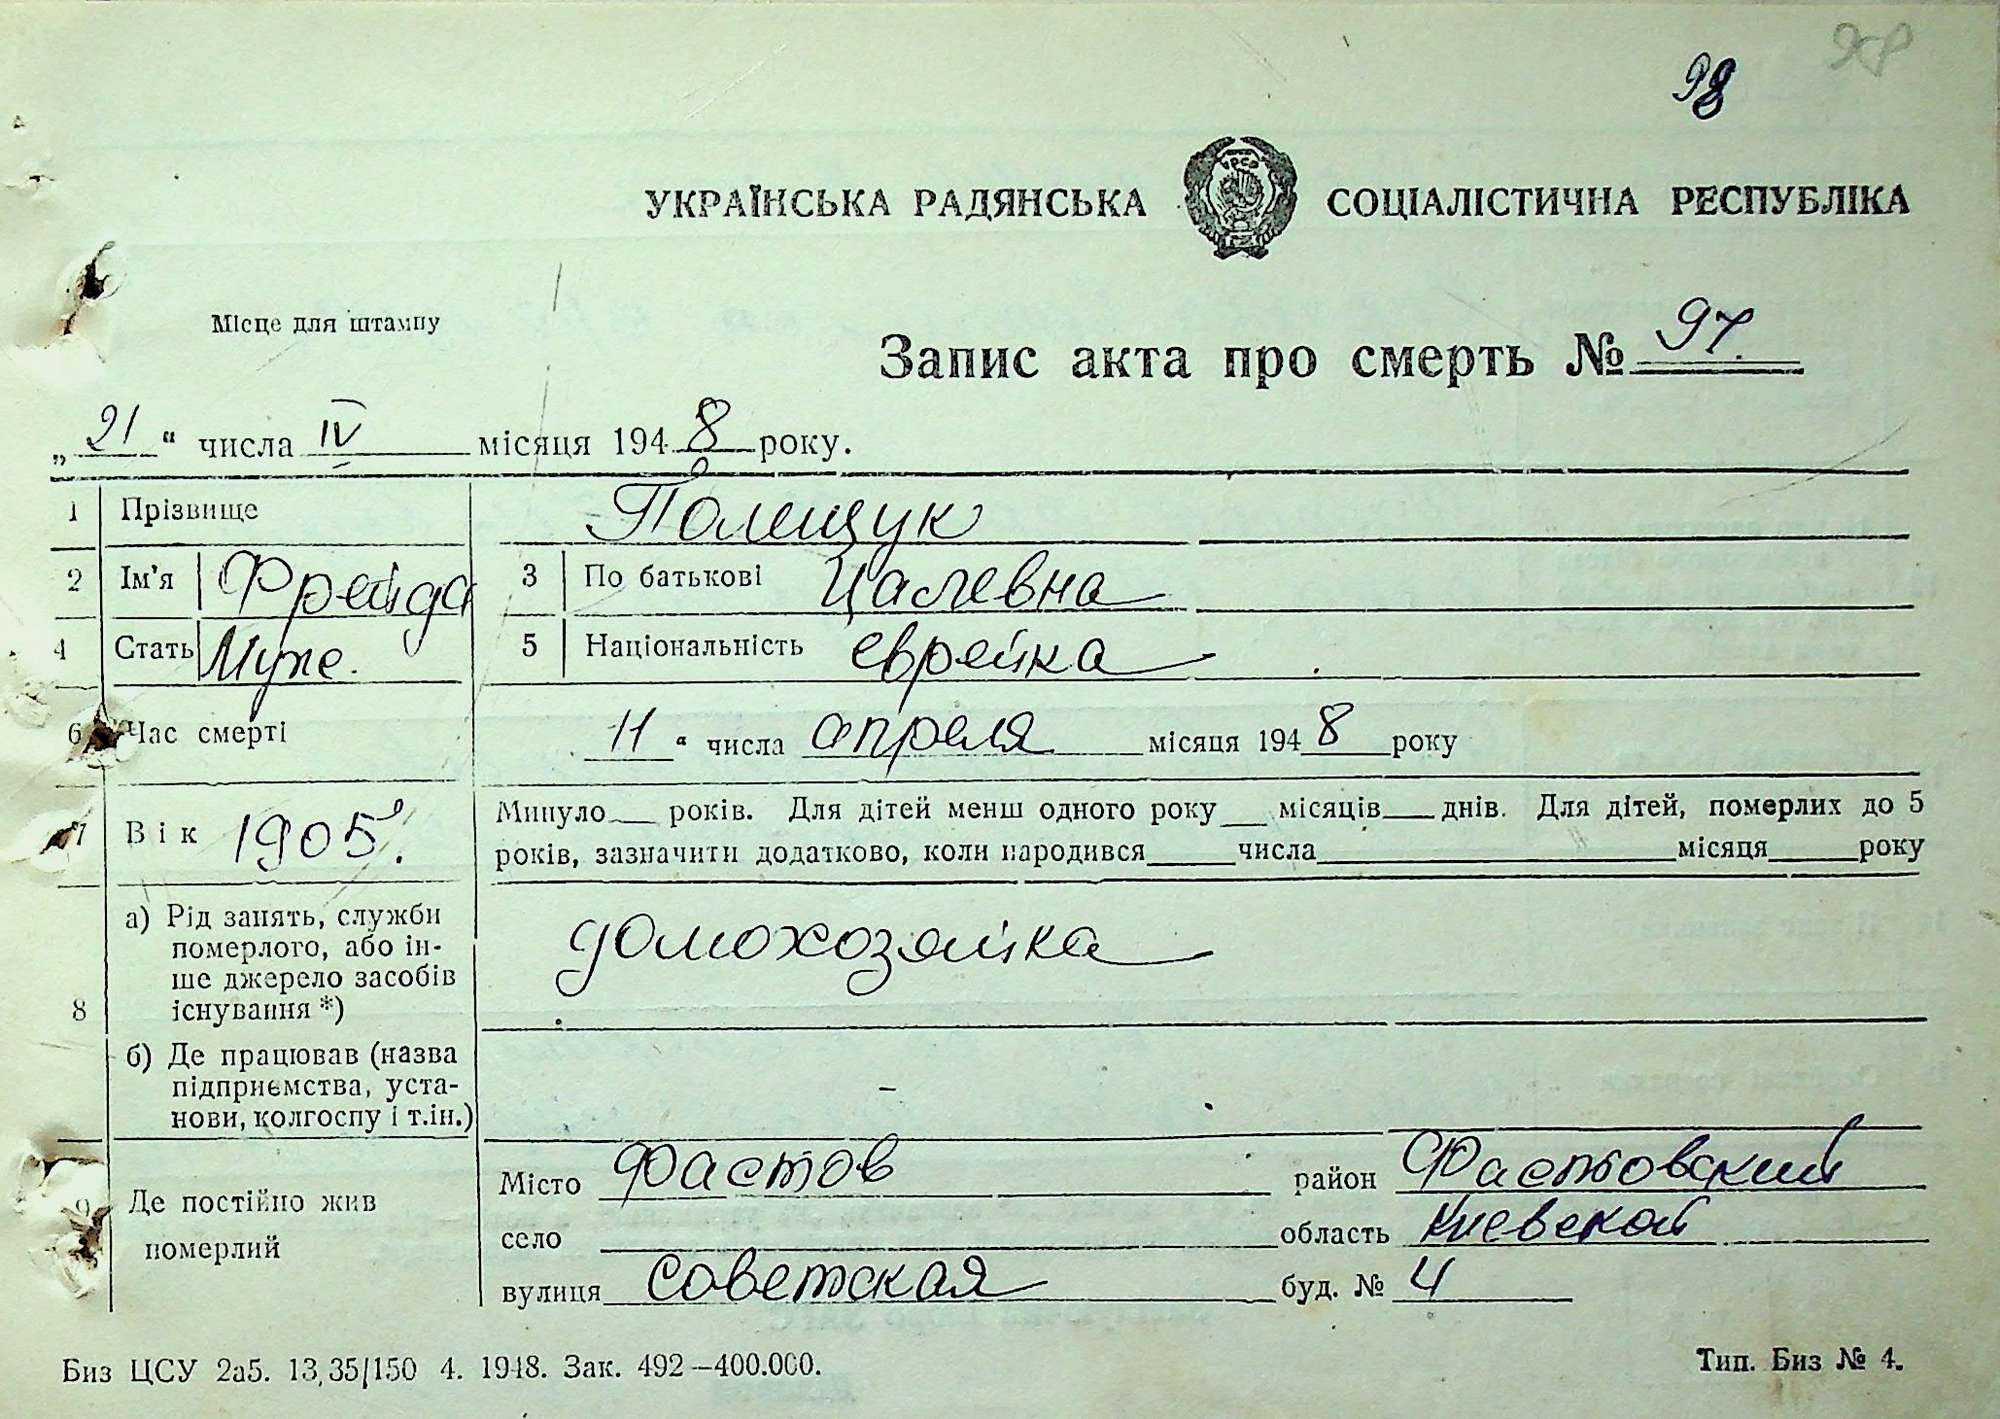 98
98
УКРАЇНСЬКА РАДЯНСЬКА СОЦІАЛІСТИЧНА РЕСПУБЛІКА
Місце для штампу
Запис акта про смерть № 97.
„21“ числа IV місяця 1948 року.
1 Прізвище Полищук
2 Ім'я Фрейда 3 По батькові Цалевна
4 Стать Муже. 5 Національність еврейка
6 Час смерті 11 “ числа апреля місяця 1948 року
7 Вік 1905. Минуло років. Для дітей менш одного року місяців днів. Для дітей, померлих до 5
років, зазначити додатково, коли народився числа місяця року
8 а) Рід занять, служби
померлого, або ін-
ше джерело засобів
існування *)
домохозяйка
б) Де працював (назва
підприємства, уста-
нови, колгоспу і т.ін.)
–
9 Де постійно жив
померлий
Місто Фастов район Фастовский
село область Киевской
вулиця Советская буд. № 4
Биз ЦСУ 2а5. 13,35/150 4. 1948. Зак. 492–400.000. Тип. Биз № 4.